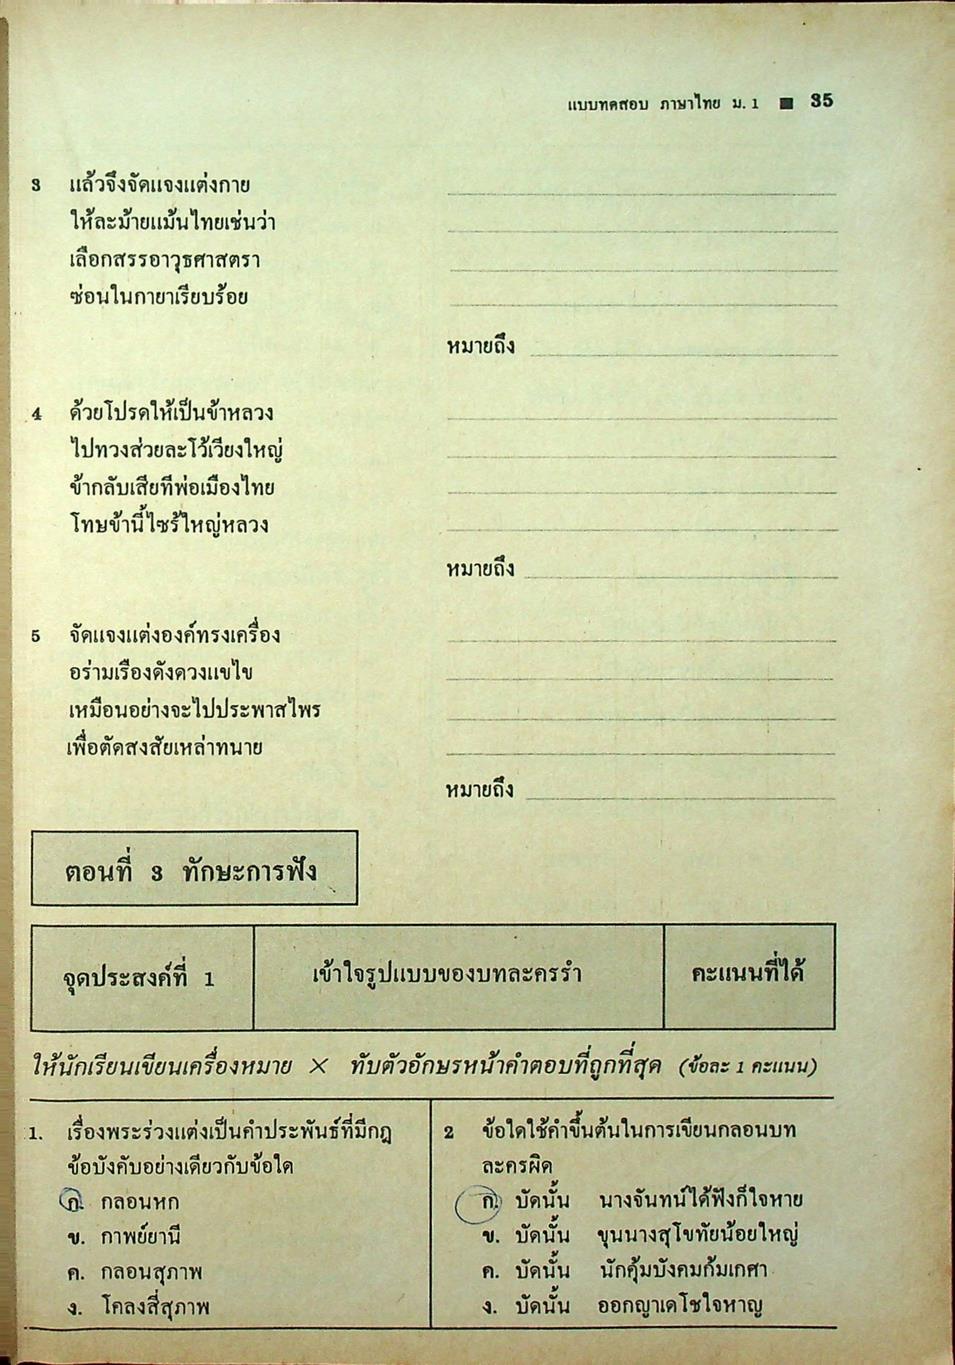 แบบทดสอบ ภาษาไทย ม. 1 ■ 35
3 แล้วจึงจัดแจงแต่งกาย
ให้ละม้ายแม้นไทยเช่นว่า
เลือกสรรอาวุธศาสตรา
ซ่อนในกายาเรียบร้อย
หมายถึง
4 ด้วยโปรดให้เป็นข้าหลวง
ไปทวงส่วยละโว้เวียงใหญ่
ข้ากลับเสียทีพ่อเมืองไทย
โทษข้านี้ไซร้ใหญ่หลวง
หมายถึง
5 จัดแจงแต่งองค์ทรงเครื่อง
อร่ามเรืองดังดวงแขไข
เหมือนอย่างจะไปประพาสไพร
เพื่อตัดสงสัยเหล่าทนาย
หมายถึง
ตอนที่ 3 ทักษะการฟัง
จุดประสงค์ที่ 1 เข้าใจรูปแบบของบทละครรำ คะแนนที่ได้
ให้นักเรียนเขียนเครื่องหมาย × ทับตัวอักษรหน้าคำตอบที่ถูกที่สุด (ข้อละ 1 คะแนน)
1. เรื่องพระร่วงแต่งเป็นคำประพันธ์ที่มีกฎ
ข้อบังคับอย่างเดียวกับข้อใด
ก. กลอนหก
ข. กาพย์ยานี
ค. กลอนสุภาพ
ง. โคลงสี่สุภาพ
2 ข้อใดใช้คำขึ้นต้นในการเขียนกลอนบท
ละครผิด
ก. บัดนั้น นางจันทน์ได้ฟังก็ใจหาย
ข. บัดนั้น ขุนนางสุโขทัยน้อยใหญ่
ค. บัดนั้น นักคุ้มบังคมก้มเกศา
ง. บัดนั้น ออกญาเดโชใจหาญ